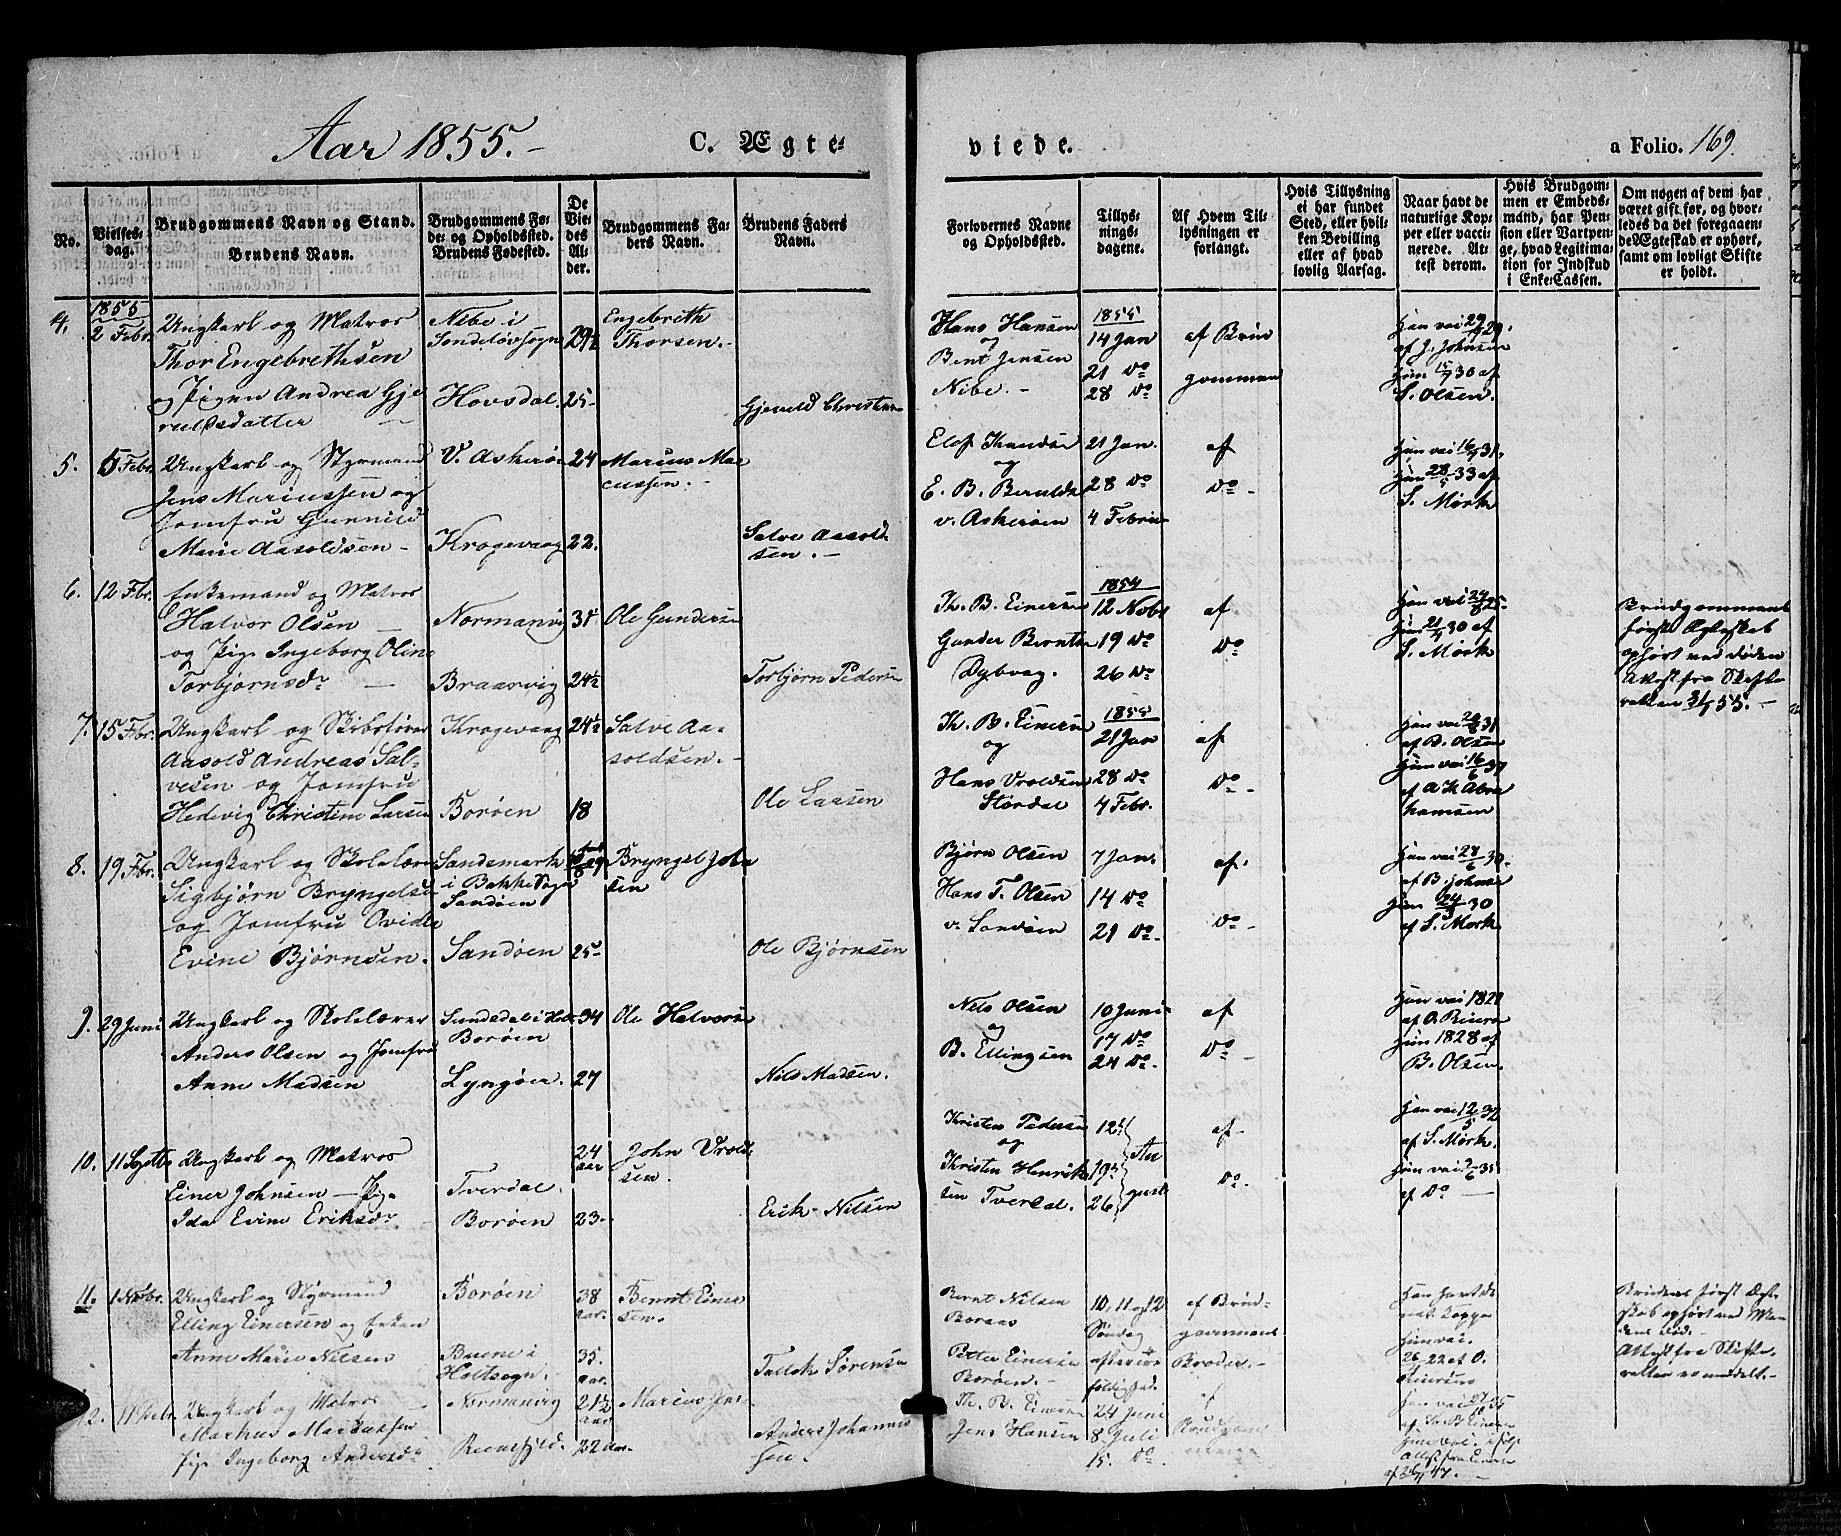 Aar 1855.
C. Ægte-
viede.
a Folio. 169.
No.
Vielses-
dag.
Brudgommens Navn og Stand.
Brudens Navn.
Brudgommens Fø-
de- og Opholdssted.
Brudens Fødested.
De
Vie-
des
Al-
der.
Brudgommens Fa-
ders Navn.
Brudens Faders
Navn.
Forlovernes Navne
og Opholdssted.
Tillys-
nings-
dagene.
Af Hvem Til-
lysningen er
forlangt.
Hvis Tillysning
ei har fundet
Sted, eller hvil-
ken Bevilling
eller af hvad
lovlig Aarsag.
Naar havt de
naturlige Kop-
per eller vacci-
nerede. At-
test derom.
Hvis Brudgom-
men er Embeds-
mand, har Pen-
sion eller Vartpen-
ge, hvad Legitima-
tion for Indskud
i Enke-Cassen.
Om nogen af dem har
været gift før, og hvor-
ledes da det foregaaen-
de Ægteskad er ophørt,
samt om lovligt Skifte
er holdt.
4.
1855
2 Febr.
Ungkarl og Matros
Thor Engebrethsen
og Pigen Andrea Gje
ruldsdatter
Nibe i
Søndeløvsogn
Hovsdal
29½
25
Engebreth
Thorsen.
Gjeruld Christen
Hans Hansen
og
Bent Jensen
Nibe.
1855
14 Jan
21 Do
28 Do
af Brud
gommen
Han vac 29/9 29.
af J. Johnsen
Hun 15/9 30 af
S. Olsen.
5.
5 Febr.
Ungkarl og Styrmand
Jens Mariussen og
Jomfru Gunnild
Marie Aasoldsen
V. Askerøe
Krogevaag
24
22.
Marius Mar
cussen.
Salve Aasold
sen.
Elof Knudsen
og
E. B. Beruldse
v. Askerøen
21 Jan.
28 Do
4 Februar
af
Do
Han vac 16/9 31.
Hun 28/5 33 af
S. Mørk
6.
12 Fbr.
Enkemand og Matros
Halvor Olsen
og Pige Ingeborg Oline
Torbjørnsdr
Normanvig
Braarvig
31
24½
Ole Gundersen
Torbjørn Pedersen
Th. B. Einersen
Gunder Berntsen
Dybvag.
1854
12 Nobr
19 Do
26 Do
af
Do
Han vac 24/8 25.
Hun 21/9 30 af
S. Mørk
Brudgommens
første Ægteskab
ophørt ved Døden
Attest fra Skifte
retten 3/1 55.
7.
15 Fbr.
Ungkarl og Skibsfører
Aasold Andreas Sal-
vesen og Jomfru
Hedevig Christine Larsen
Krogevaag
Borøen
24½
18
Salve Aa-
soldsen.
Ole Larsen
Th. B. Einersen
og
Hans Vroldsen
Stordal
1855
21 Jan
28 Do
4 Febr.
af
Do
Han vac 28/8 31
af B. Olsen
Hun vac 16/6 37
af A K Abra
hamsen
8.
19 Fbr.
Ungkarl og Skolelærer
Sigbjørn Bryngelsen
og Jomfru Ovidia
Evine Bjørnsen.
Sandsmark
i Bakke Sogn
Sandøen
Sandøen
25
Bryngel John
sen
Ole Bjørnsen
Bjørn Olsen
Hans T. Olsen
v. Sandøen
7 Jan.
14 Do
21 Do
af
Do
Han vac 28/6 30.
af B. Johnse
Hun 24/9 30
af S. Mørk
9.
29 Juni
Ungkarl og Skolelærer
Anders Olsen og Jomfru
Anne Madsen
Sundsdal i Holt
Borøen
Lyngøer.
34
27
Ole Halvorsen
Nils Madsen.
Nels Olsen
og
B. Ellingsen
10 Juni
17 Do
24 Do
af
Do
Han vac 1821
af O. Einersen
Hun 1828 af
B. Olsen.
10.
11 Septb
Ungkarl og Matros
Einer Johnsen — Pige
Ida Evine Eriksdr
Tverdal.
Borøen
24
aar
23.
John Vrold
sen.
Erik Nilsen
Kristen Pedersen
og
Kristen Henrik
sen Tverdal.
12.
19.
26
Au
gust
af
Do
Han vac 12/5 32
af S. Mørk.
Hun vac 2/6 35
af Do
11.
1 Nobr.
Ungkarl og Styrmand
Elling Einersen og Enken
Anne Marie Nilsen
Borøen
Buene i
Holtsogn.
38
aar.
35.
aar.
Bernt Einer
sen.
Tallek Sørensen
Bernt Nilsen
Boraas
Petter Einersen
Borøen.
10, 11 og 12
Søndag
efter
af Brud-
gommens
Broder.
Han havde
nat. Kopper
Hun vac.
26/ 22 af O.
Einersen
Brudens første Ægte
skab ophørt ved Man
dens Død.
Attest fra Skifte
retten er meddelt.
12.
Ungkarl og Matros
Markus Mariussen
Pige Ingeborg Andersdr
Normanvig
21½
aar
22 aar.
Marius Jens
Anders Johannes
sen.
Th. B. Einersen
Jens Hansen
24 Juni
8 Juli
15. Do
af
Brudgom
men